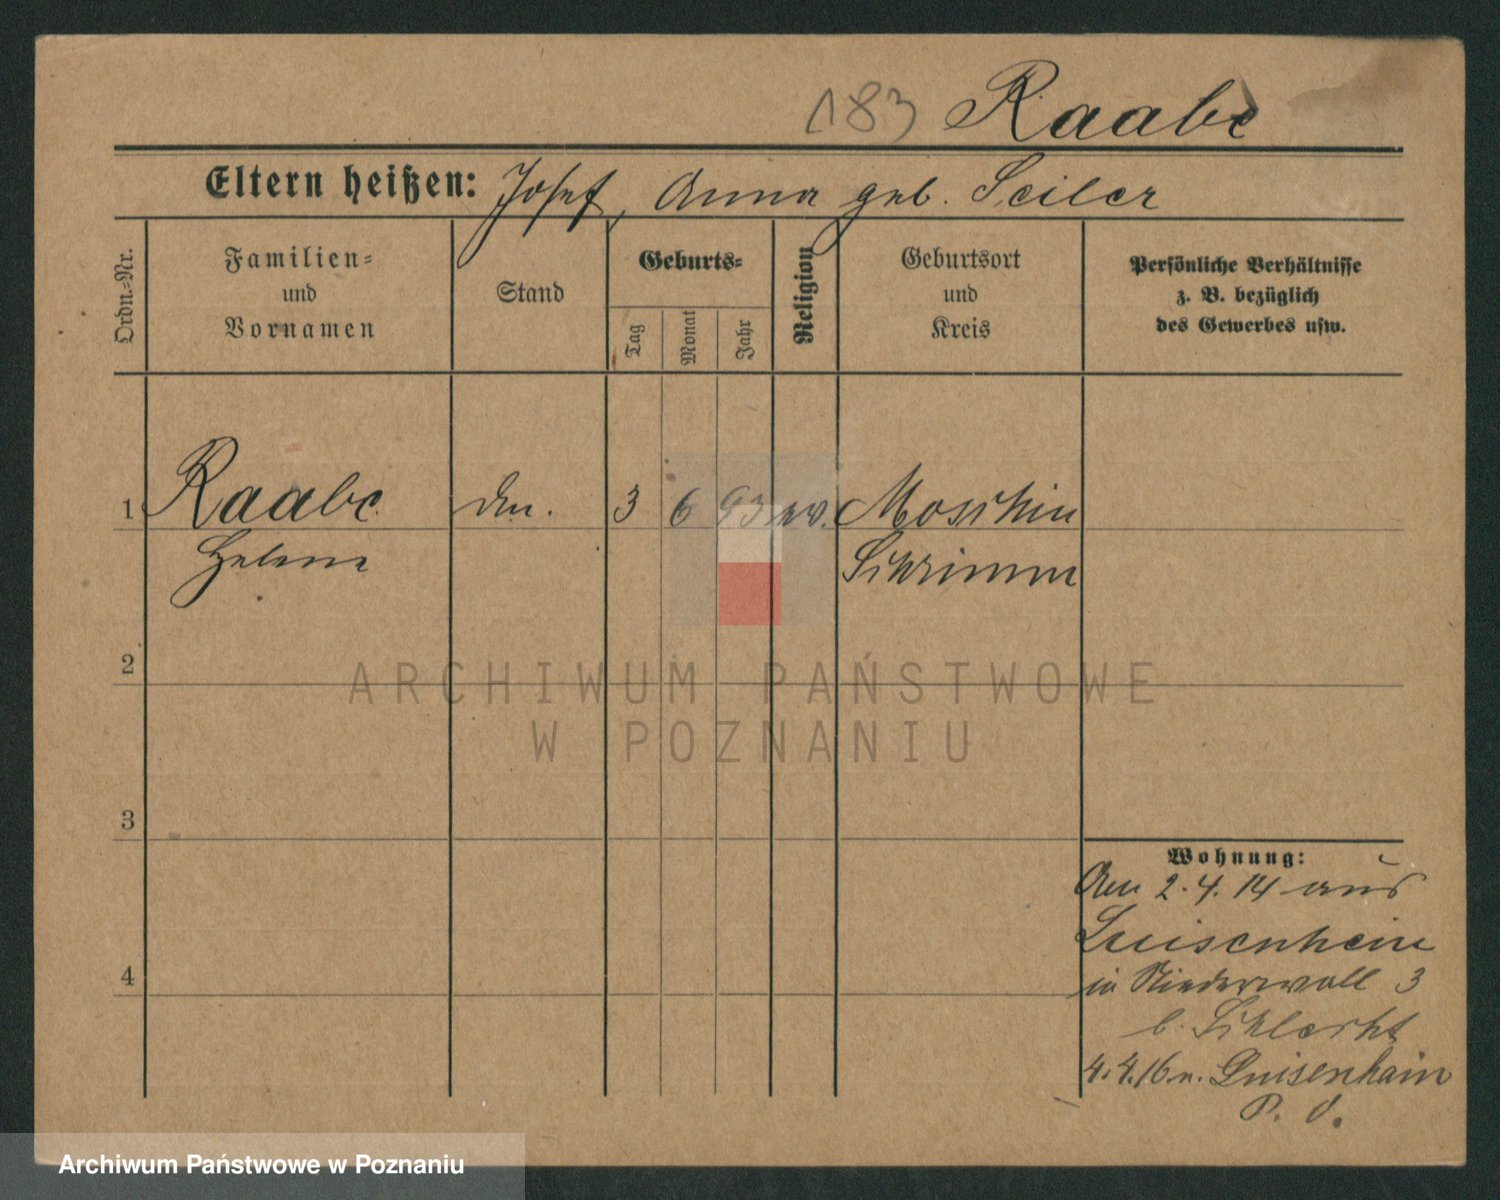 183 Raabe
Eltern heißen: Josef, Anna geb. Seiler
Ordn.-Nr.
Familien-
und
Vornamen
Stand
Geburts-
Tag
Monat
Jahr
Religion
Geburtsort
und
Kreis
Persönliche Verhältnisse
z. B. bezüglich
des Gewerbes usw.
1 Raabe 3 6 93 ev. Moschin
Helene Schrimm
2
ARCHIWUM PAŃSTWOWE
W POZNANIU
3
Wohnung:
Am 2.4.14 aus
Luisenhain
4
in Niederwall 3
b. Schlecht
4.4.16 n. Luisenhain
P. O.
Archiwum Państwowe w Poznaniu